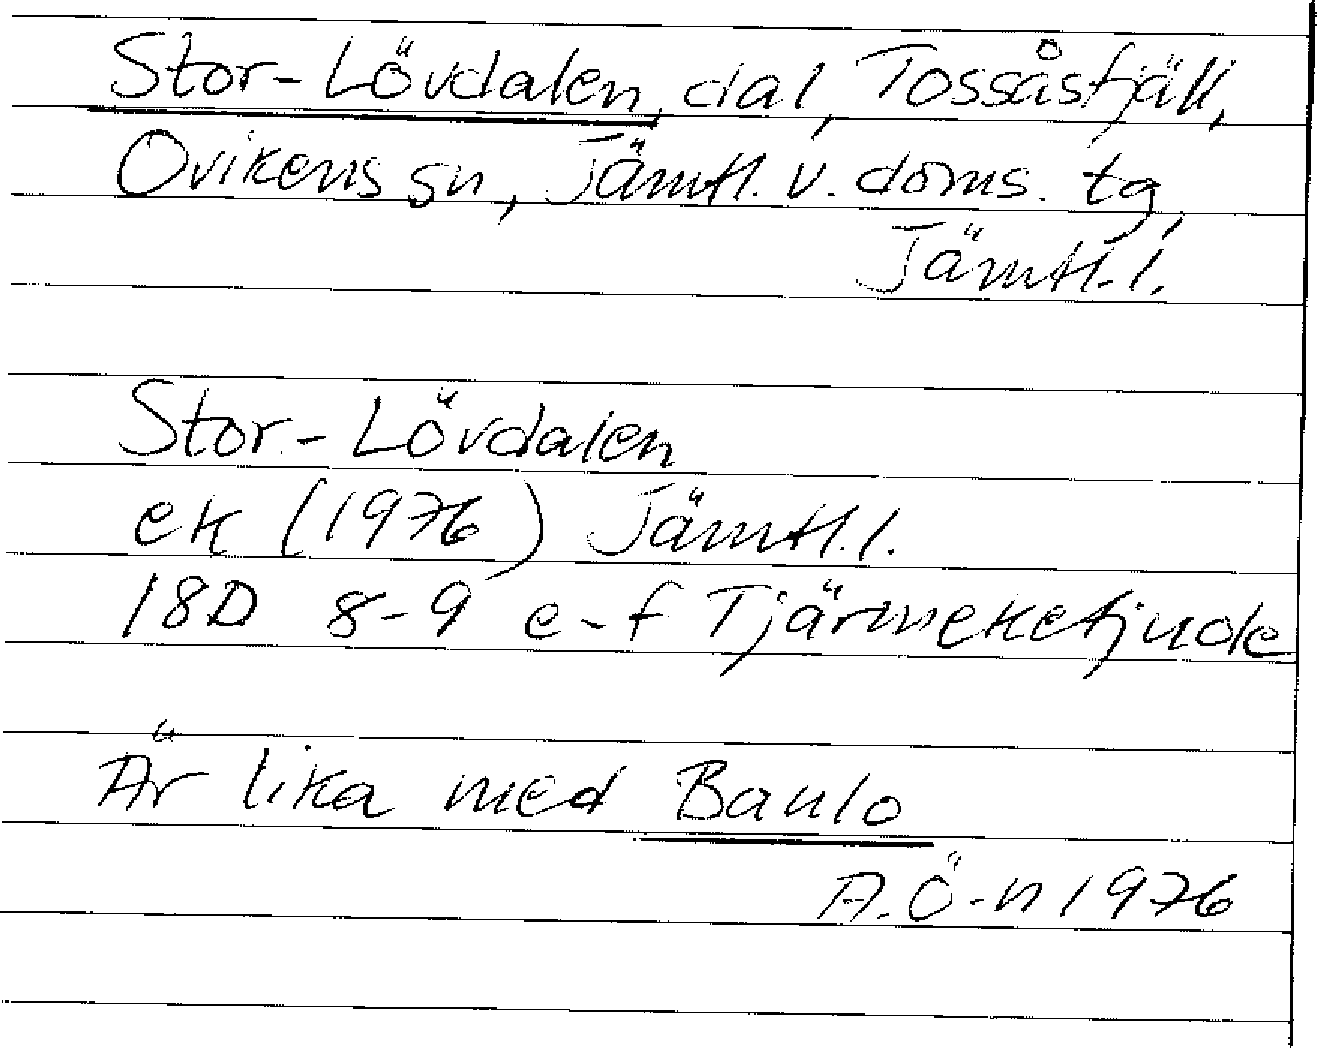 Stor-Lövdalen, dal, Tossåsfjäll,
Ovikens sn, Jämtl. v. doms. tg,
Jämtl. l.
Stor-Lövdalen
ek (1976) Jämtl. l.
18D 8-9 e-f Tjärmekefjude
Är lika med Baulo
A. Ö-n 1976